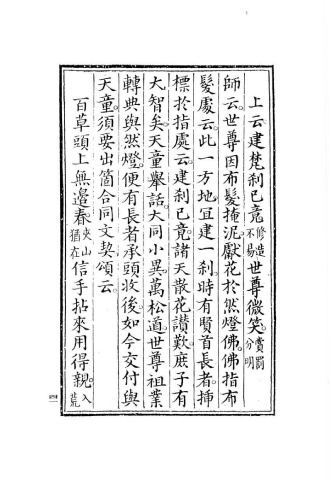 上云。建梵刹已竟。修造不易世尊微笑。賞罰分明
師云。世尊因布髮掩泥。獻花於然燈佛。佛指布
髮處云。此一方地。宜建一刹。時有賢首長者。揷
標於指處云。建刹已竟。諸天散花讃歎。庶子有
大智矣。天童舉話。大同小異。萬松道。世尊祖業
轉典與然燈。便有長者承頭收後。如今交付與
天童。須要出箇合同文契。頌云。
百草頭上無邊春。夾山猶在信手拈來用得親。入荒